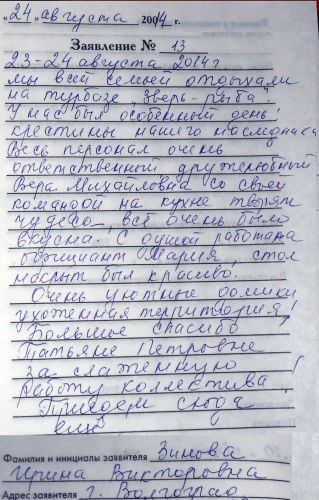 "24" августа 2004 г.
Заявление № 13
23-24 августа 2014 г.
мы всей семьёй отдыхали
на турбазе "Зверь-рыба".
У нас был особенный день:
крестины нашего наследника
Весь персонал очень
ответственный дружелюбный
Вера Михайловна со своей
командой на кухне творят
чудесо, всё очень было
вкусна. С душой работала
официант Мария, стол
накрыт был красиво.
Очень уютные домики
ухоженная территория!
Большое спасибо
Татьяне Петровне
за слаженную
работу коллектива!
Приедем сюда
ещё
Фамилия и инициалы заявителя Зинова
Ирина Викторовна
Адрес заявителя г. Волгоград